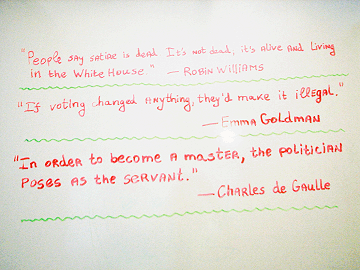 "People say satire is dead It's not dead, it's alive and living
in the White House" — Robin Williams
"If voting changed anything, they'd make it illegal."
— Emma Goldman
"In order to become a master, the politician
poses as the servant."
— Charles de Gaulle